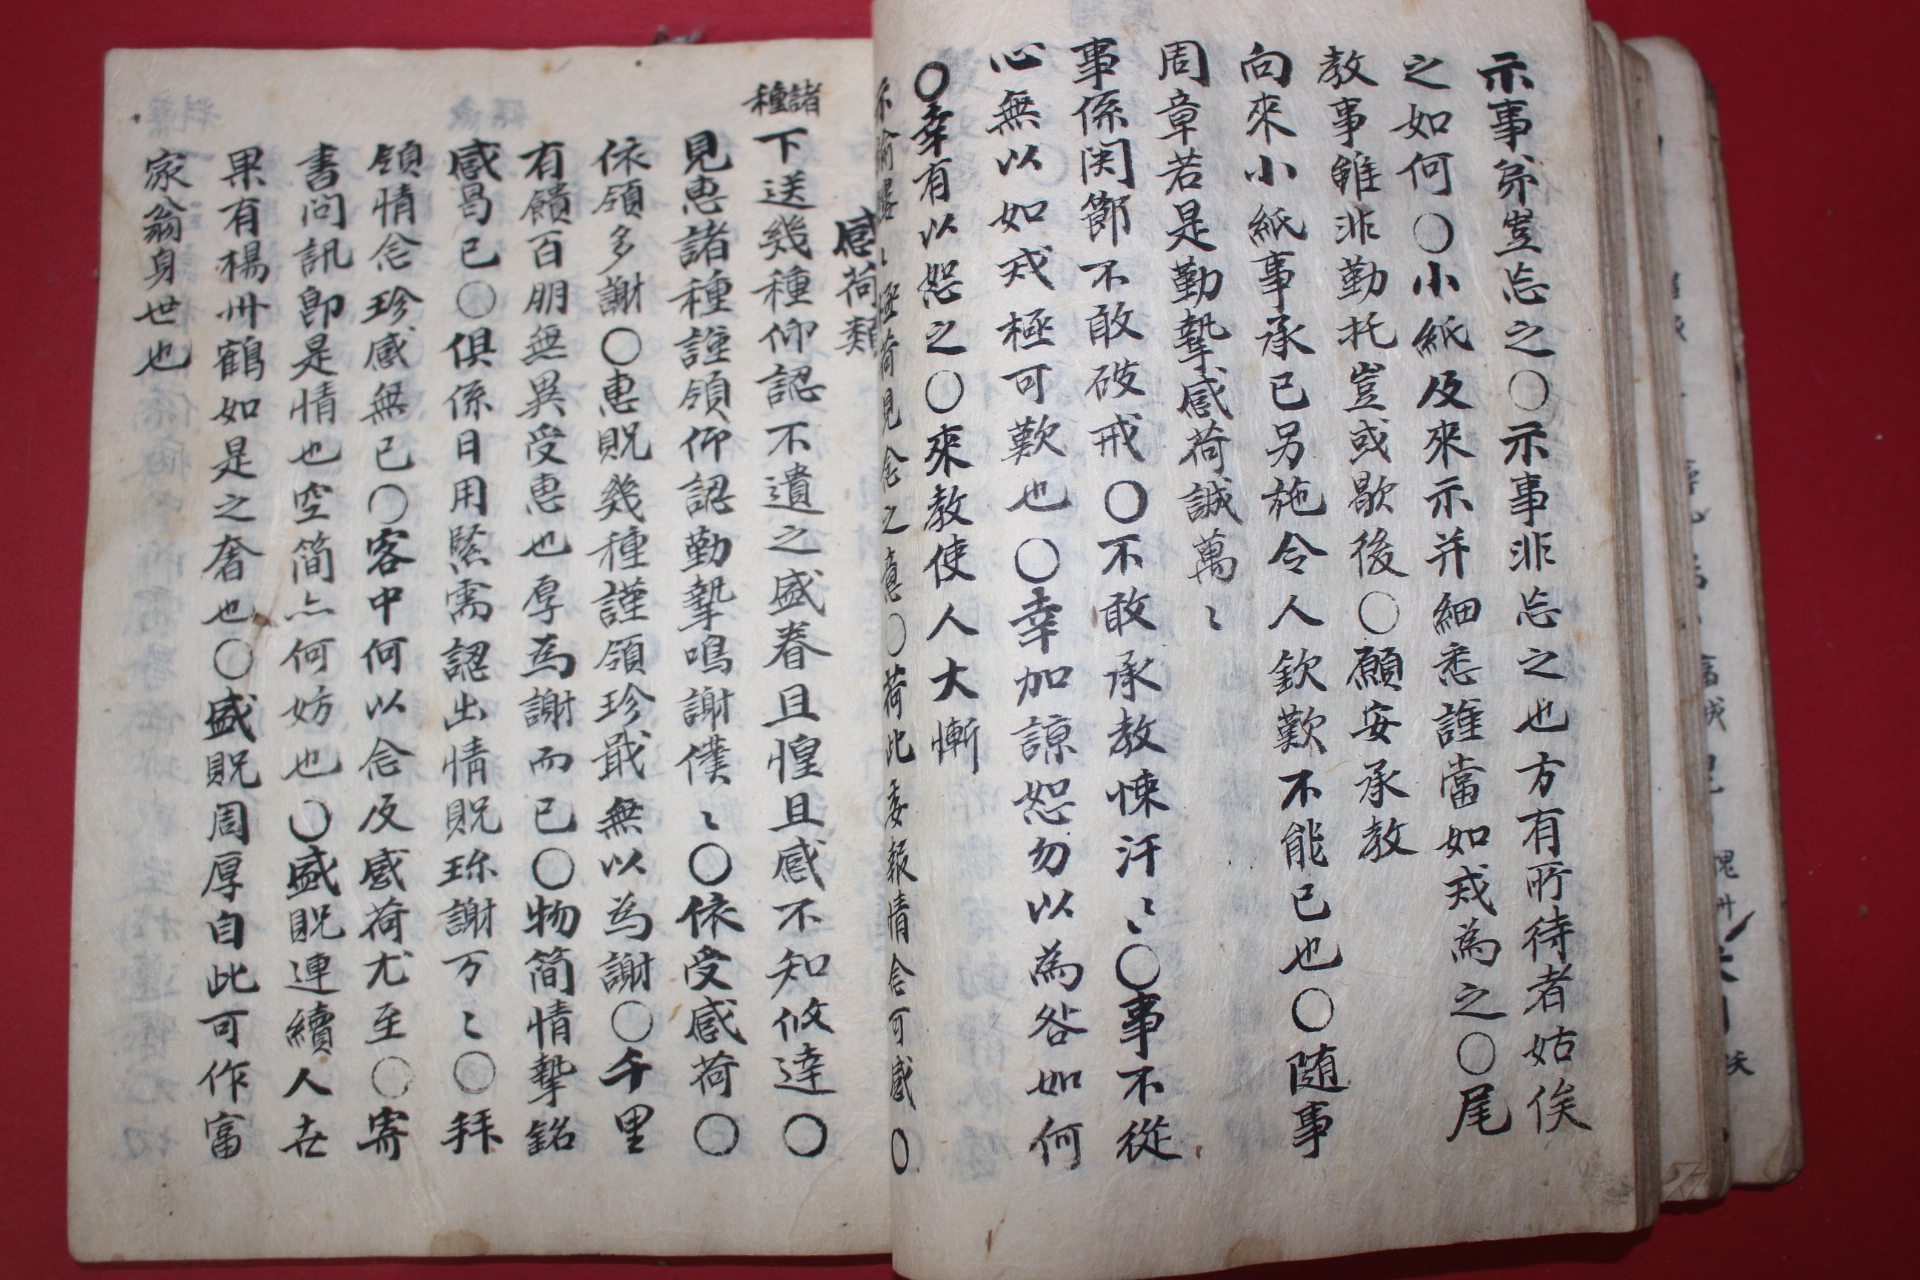 示事弟豈忘之○示事非忘之也方有所待者姑俟
之如何○小紙及來示并細悉謹當如戒為之○尾
教事雖非勤托豈或歇後○願安承教
向來小紙事承已另施令人欽歎不能已也○随事
周章若是勤摯感荷誠萬〻
事係関節不敢破戒○不敢承教悚汗〻○事不從
心無以如戒極可歎也○幸加諒恕勿以為咎如何
○幸有以恕之○來教使人大慚
見念之意○荷此委報情念可感○
感荷類
諸種
下送幾種仰認不遺之盛眷且惶且感不知攸達○
見惠諸種謹領仰認勤摯鳴謝僕〻○依受感荷○
依領多謝○惠貺幾種謹領珍戢無以為謝○千里
有饋百朋無異受惠也厚為謝而已○物簡情摯銘
感曷已○俱係日用緊需認出情貺珎謝万〻○拜
領情念珍感無已○客中何以念及感荷尤至○寄
書問訊即是情也空简亦何妨也○盛貺連續人去
果有楊州鶴如是之奢也○盛貺周厚自此可作富
家翁身世也